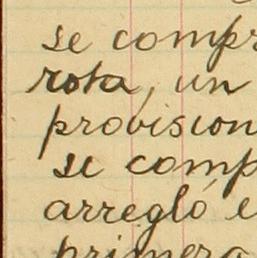 se compr
rota, un
provision
se comp
arregló e
primera